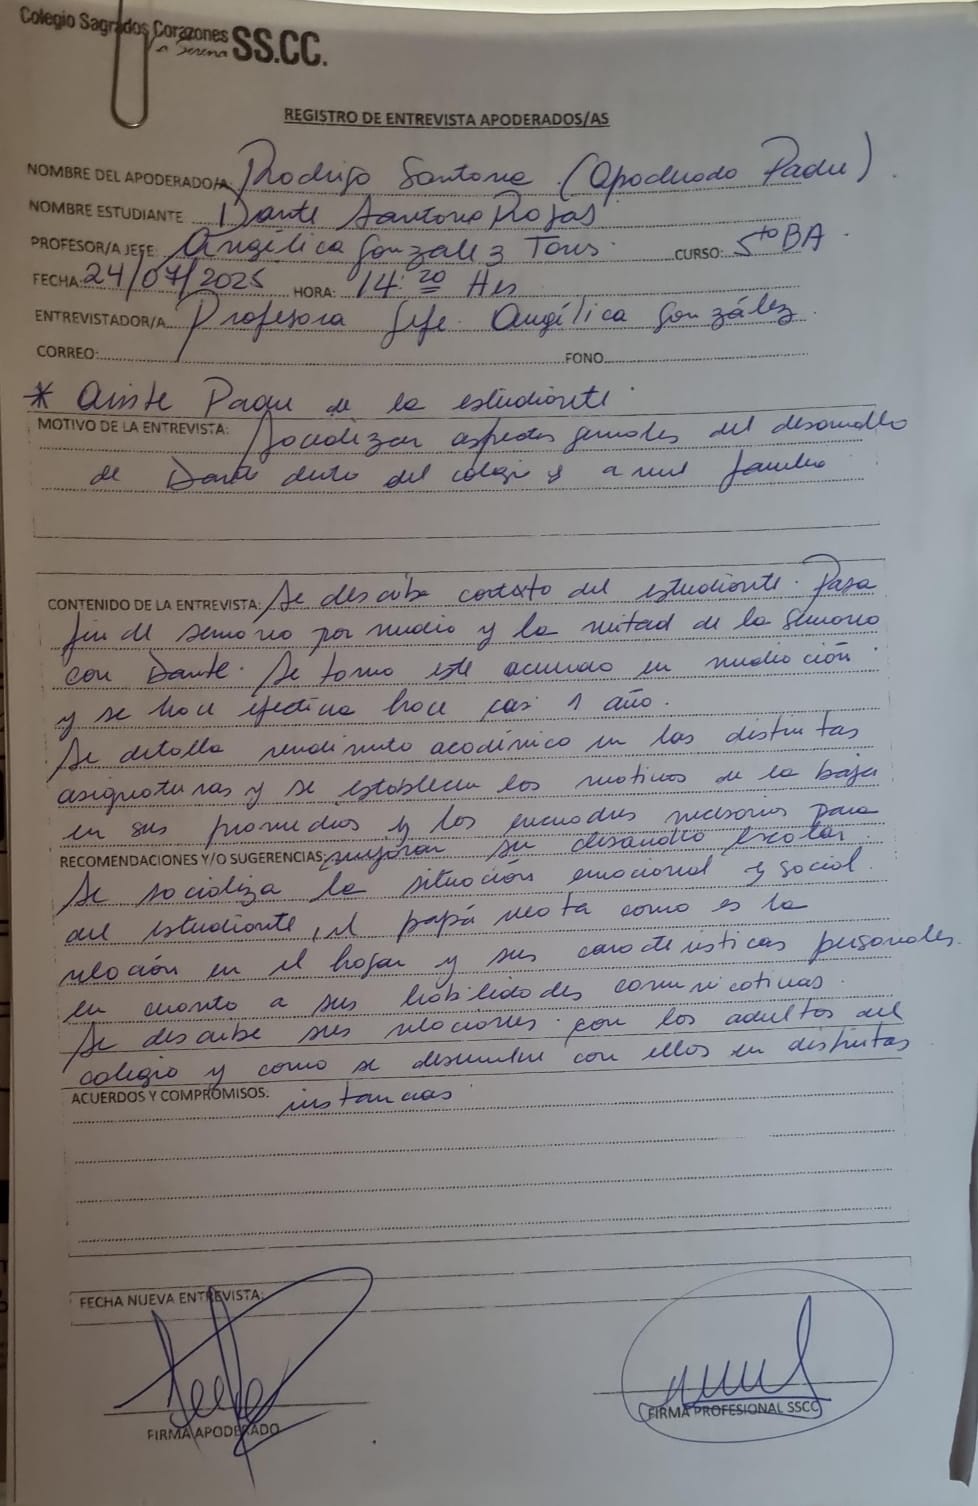 Colegio Sagrados Corazones SS.CC.
La Serena
REGISTRO DE ENTREVISTA APODERADOS/AS
NOMBRE DEL APODERADO/A: Rodrigo Santana (Apoderado Padre).
NOMBRE ESTUDIANTE Dante Santana Rojas
PROFESOR/A JEFE: Angélica González Torres. CURSO: 5to BA.
FECHA: 24/07/2025 HORA: 14:20 Hrs
ENTREVISTADOR/A Profesora Jefe. Angélica González.
CORREO: FONO
* Asiste Padre de la estudiante.
MOTIVO DE LA ENTREVISTA: Socializar aspectos generales del desarrollo
de Dante dentro del colegio y a nivel familiar
CONTENIDO DE LA ENTREVISTA: Se describe contexto del estudiante. Pasa
fin de semana por medio y la mitad de la semana
con Dante. Se toma este acuerdo en mediación
y se hace efectiva hace casi 1 año.
Se detalla rendimiento académico en las distintas
asignaturas y se establecen los motivos de la baja
en sus promedios y los necesarios para
RECOMENDACIONES Y/O SUGERENCIAS: mejorar su desarrollo escolar.
Se socializa la situación emocional y social
del estudiante, el papá relata como es la
relación en el hogar y sus características personales
en cuanto a sus habilidades comunicativas.
Se describe sus relaciones con los adultos del
colegio y como se desenvuelve con ellos en distintas
ACUERDOS Y COMPROMISOS: instancias
FECHA NUEVA ENTREVISTA:
FIRMA APODERADO FIRMA PROFESIONAL SSCC